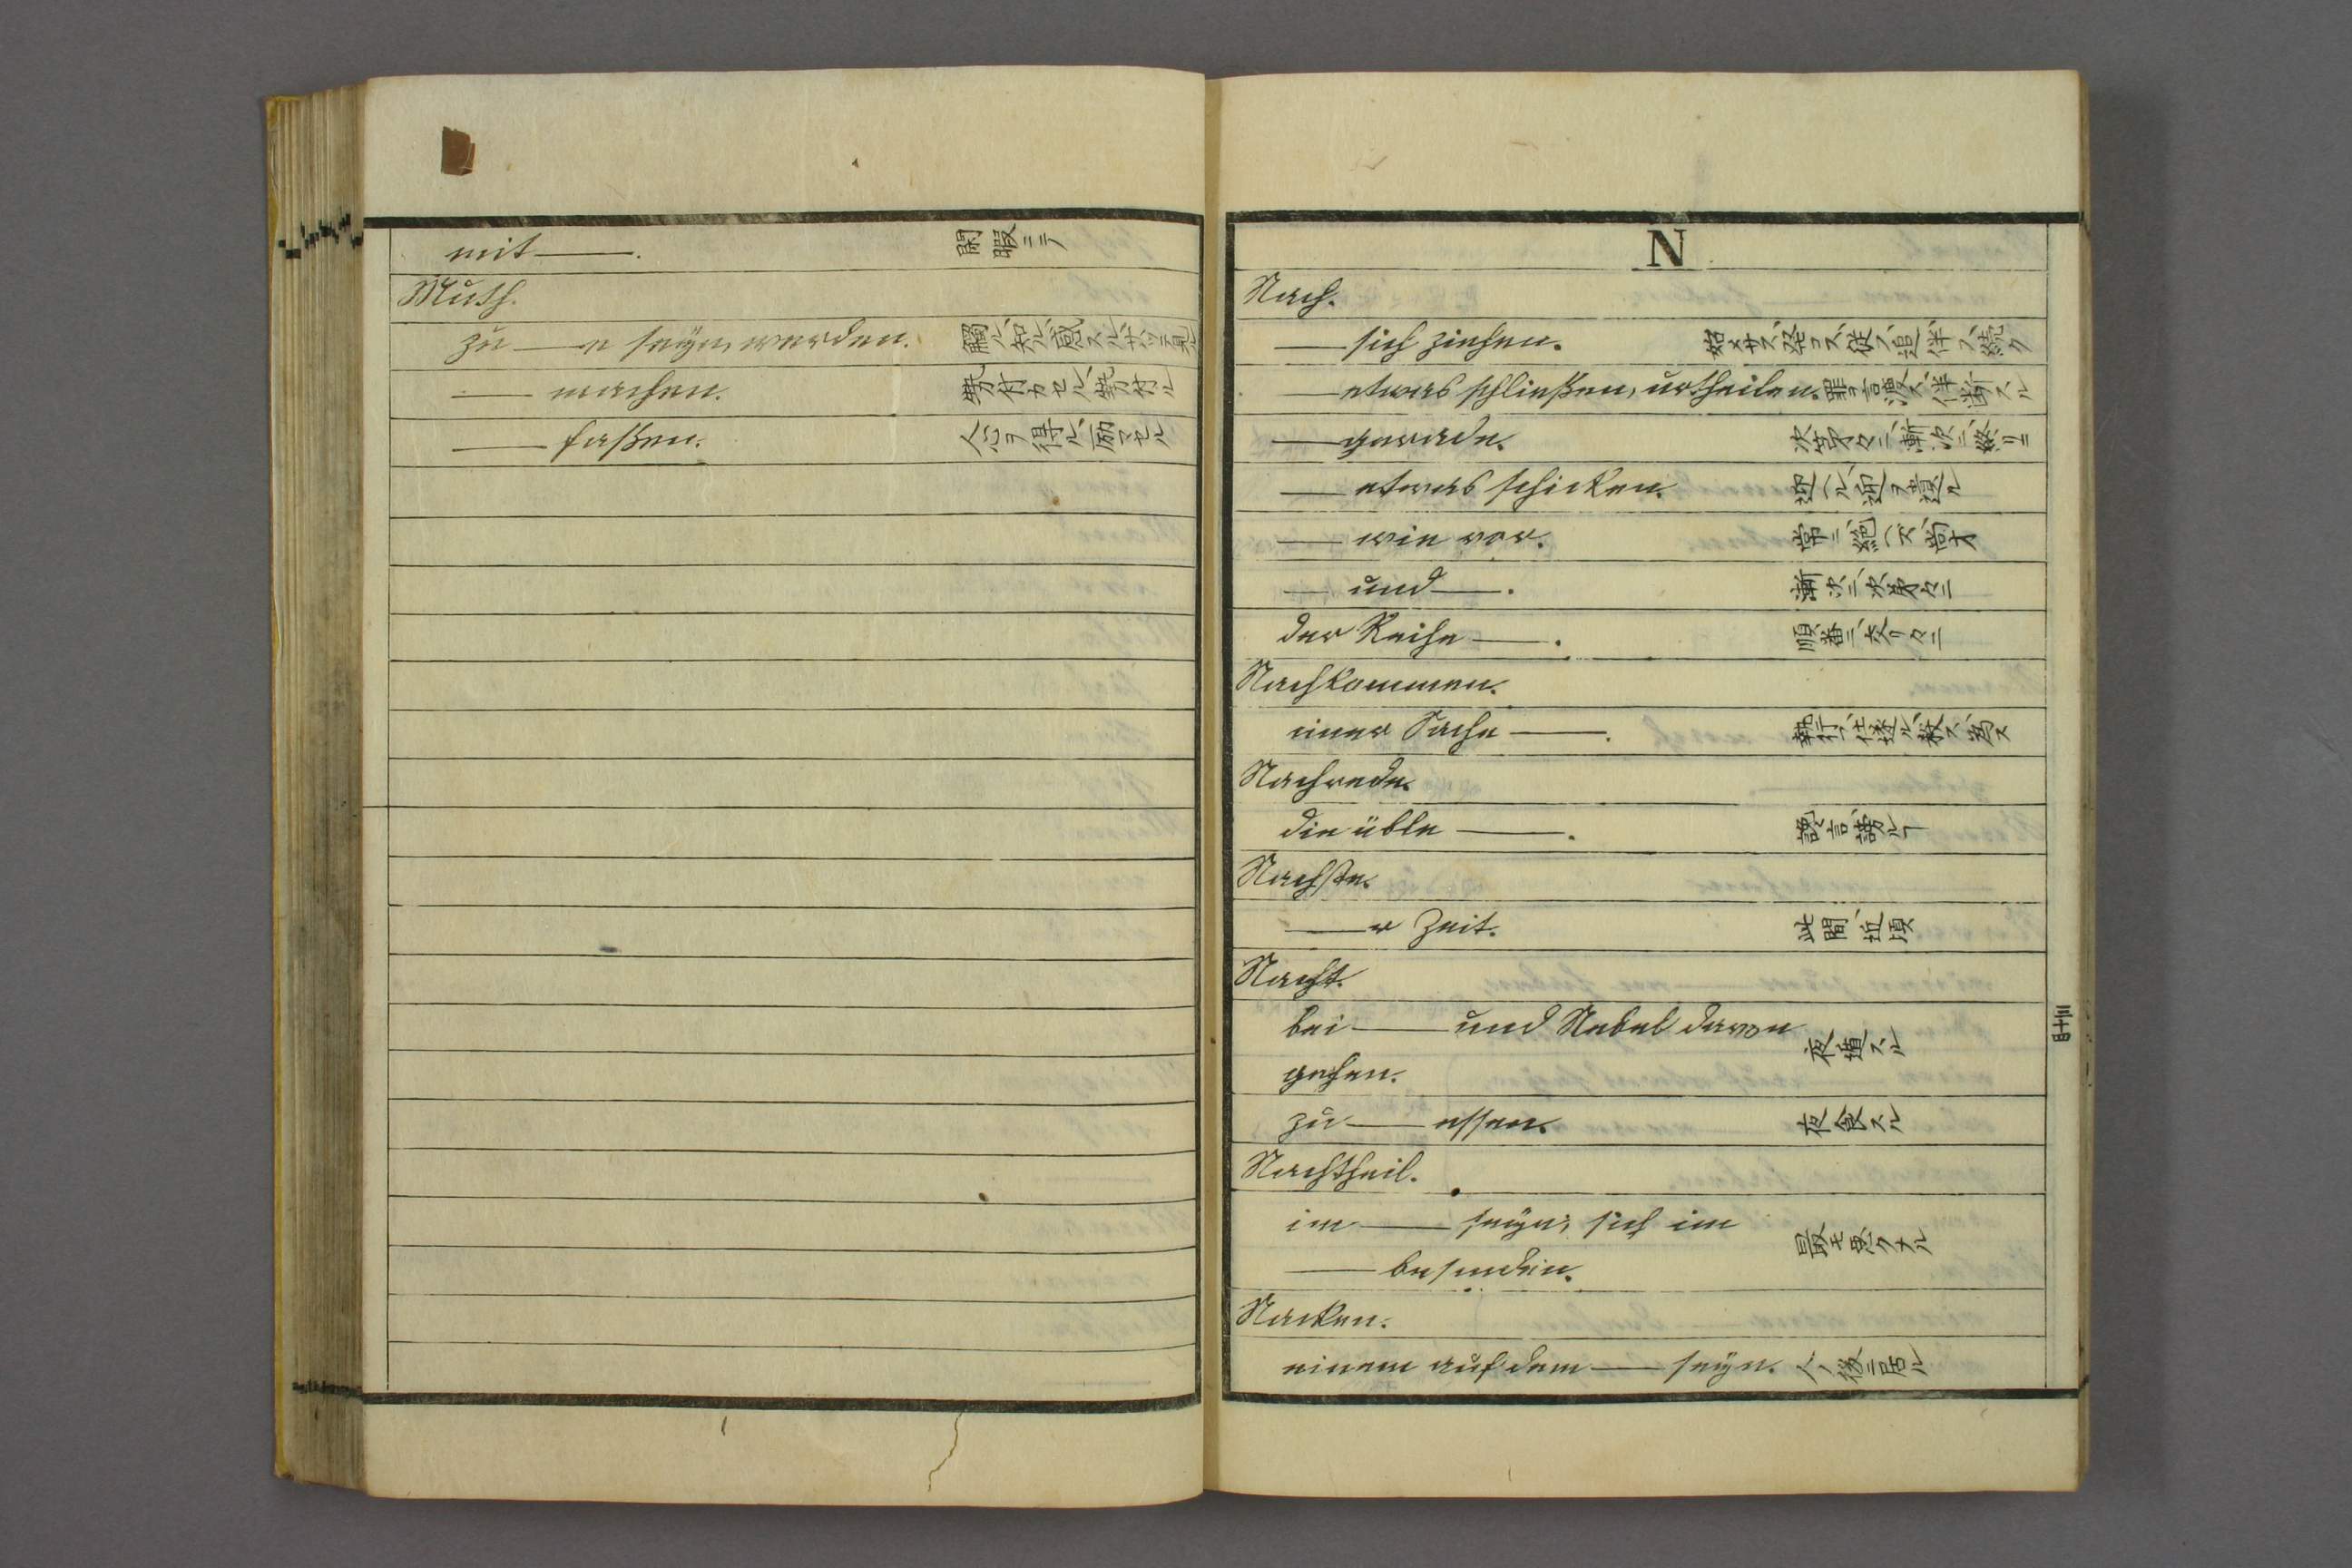 mit —. 閑暇ニテ
Muth.
zu —e seyn, werden. 觸ル、知ル、感スル
— machen.
— faßen. 得ル、励マセル
N
Nach.
— sich ziehen. 従フ、追伴フ、続ク
— etwas schließen, urtheilen.
— gerade. 次第々々ニ、漸次ニ、終リニ
— etwas schicken. 迎ヘル、迎ヲ遣ル
— wie vor. 常ニ、絶ヘズ、尚オ
— und —. 漸次ニ、次第々々ニ
der Reihe —. 順番ニ、交リ々々ニ
Nachkommen.
einer Sache —. 執行フ、仕遂ル、致ス、為ス
Nachrede.
die üble —. 言、謗ル
Nachste.
—r Zeit. 此間、近頃
Nacht.
bei — und Nebel davon
gehen. 夜遁スル
zu — essen. 夜食スル
Nachtheil.
im — seyn; sich im
— befinden. 最モ悪クナル
Nacken.
einem auf dem — seyn. 人ノ後ニ居ル